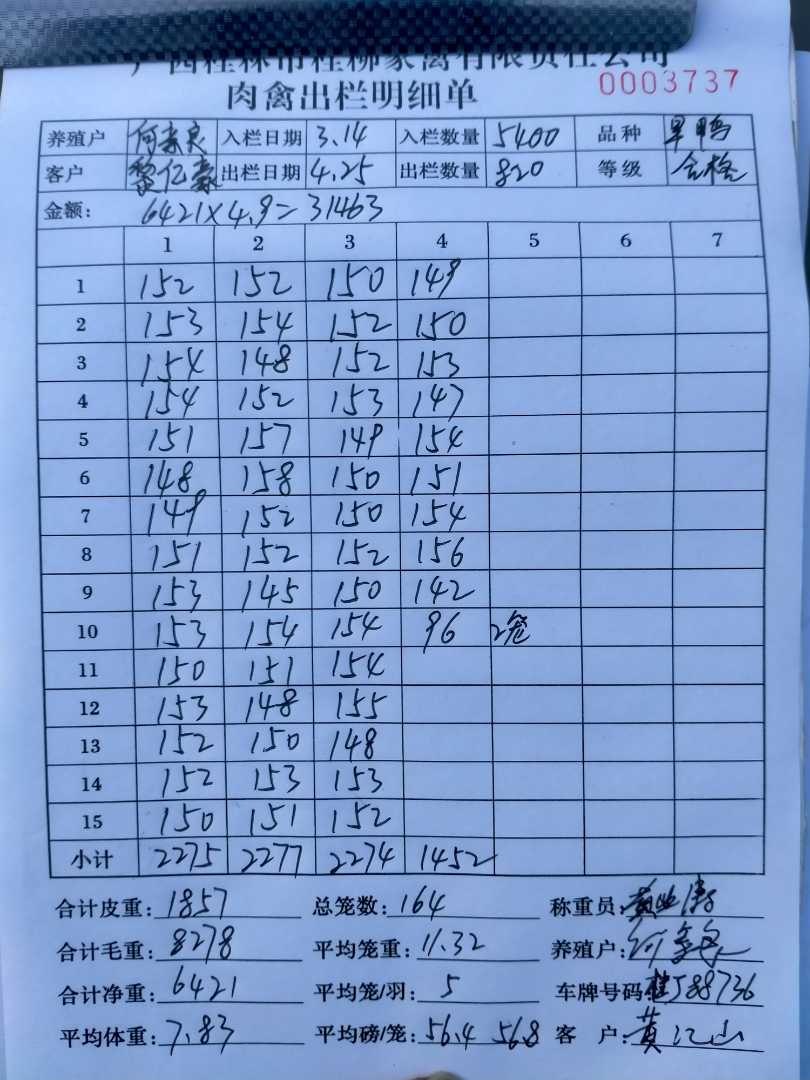 广西桂林市桂柳家禽有限责任公司
0003737
肉禽出栏明细单
养殖户 入栏日期 3.14 入栏数量 5400 品种 旱鸭
客户 黎亿豪 出栏日期 4.25 出栏数量 820 等级 合格
金额: 6421×4.9=31463
1 2 3 4 5 6 7
1 152 152 150 149
2 153 154 152 150
3 154 148 152 153
4 154 152 153 147
5 151 157 149 154
6 148 158 150 151
7 149 152 150 154
8 151 152 152 156
9 153 145 150 142
10 153 154 154 96 2笼
11 150 151 154
12 153 148 155
13 152 150 148
14 152 153 153
15 150 151 152
小计 2275 2277 2274 1452
合计皮重: 1857 总笼数: 164 称重员:
合计毛重: 8278 平均笼重: 11.32 养殖户:
合计净重: 6421 平均笼/羽: 5 车牌号码: 桂J88736
平均体重: 7.83 平均磅/笼: 56.4 56.8 客 户: 黄江山